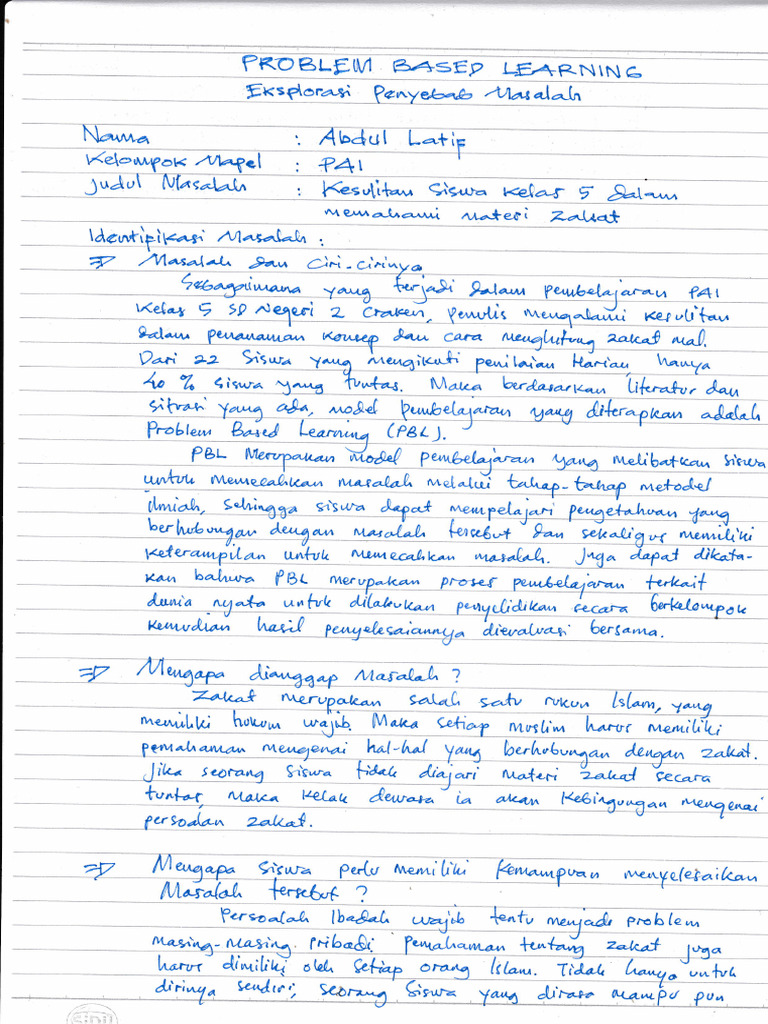 PROBLEM BASED LEARNING
Eksplorasi Penyebab Masalah
Nama : Abdul Latif
Kelompok Mapel : PAI
Judul Masalah : Kesulitan Siswa Kelas 5 dalam
memahami materi Zakat
Identifikasi Masalah :
⇒ Masalah dan Ciri-cirinya
Sebagaiimana yang terjadi dalam pembelajaran PAI
Kelas 5 SD Negeri 2 Craken, penulis mengalami kesulitan
dalam penanaman konsep dan cara menghitung zakat mal.
Dari 22 Siswa yang mengikuti penilaian Harian, hanya
40 % siswa yang tuntas. Maka berdasarkan literatur dan
situasi yang ada, model pembelajaran yang diterapkan adalah
Problem Based Learning (PBL).
PBL Merupakan model pembelajaran yang melibatkan siswa
untuk memecahkan masalah melalui tahap-tahap metodel
ilmiah, sehingga siswa dapat mempelajari pengetahuan yang
berhubungan dengan masalah tersebut dan sekaligus memiliki
keterampilan untuk memecahkan masalah. Juga dapat dikata-
kan bahwa PBL merupakan proses pembelajaran terkait
dunia nyata untuk dilakukan penyelidikan secara berkelompok
kemudian hasil penyelesaiannya dievaluasi bersama.
⇒ Mengapa dianggap Masalah ?
Zakat merupakan salah satu rukun Islam, yang
memiliki hukum wajib. Maka setiap muslim harus memiliki
pemahaman mengenai hal-hal yang berhubungan dengan zakat.
Jika seorang siswa tidak diajari materi zakat secara
tuntas, maka kelak dewasa ia akan kebingungan mengenai
persoalan zakat.
⇒ Mengapa siswa perlu memiliki kemampuan menyelesaikan
Masalah tersebut ?
Persoalah Ibadah wajib tentu menjadi problem
masing-masing pribadi. Pemahaman tentang zakat juga
harus dimiliki oleh setiap orang Islam. Tidak hanya untuk
dirinya sendiri, seorang siswa yang dirasa mampu pun
SIDU